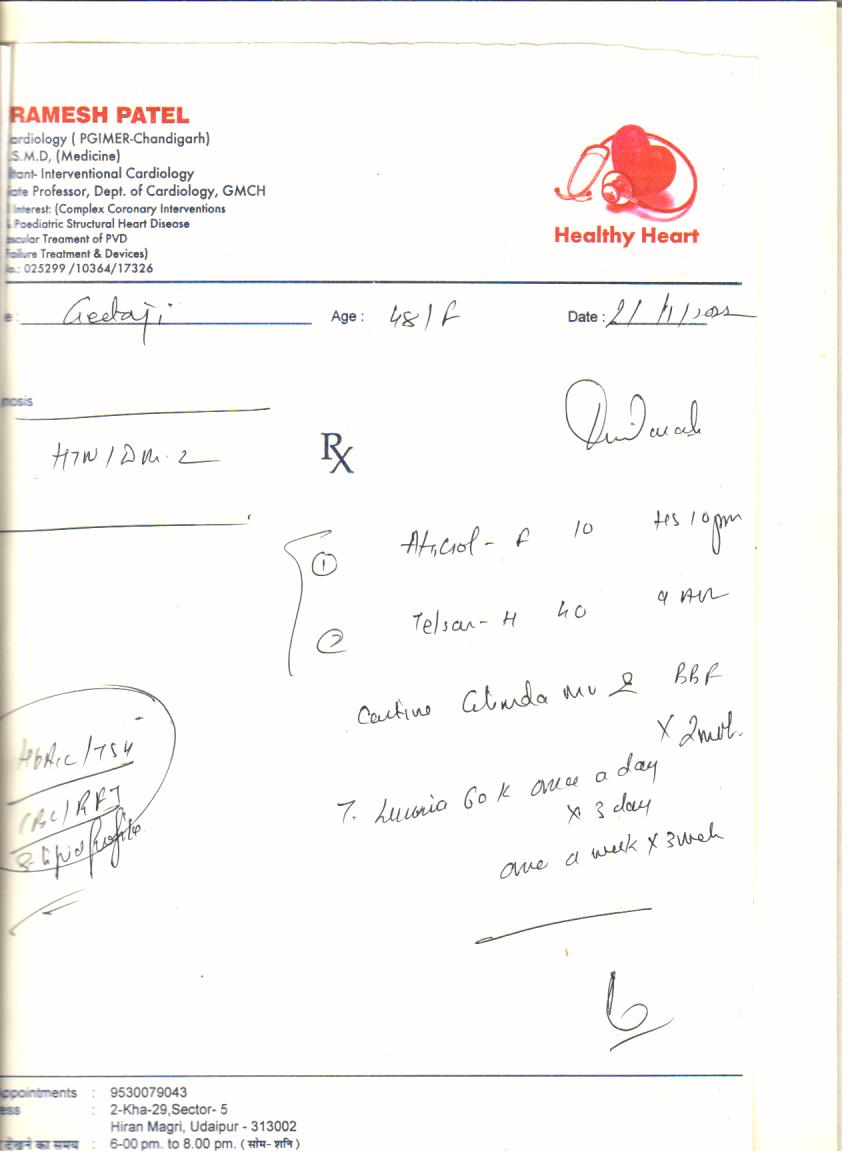 RAMESH PATEL
ardiology ( PGIMER-Chandigarh)
.S.M.D, (Medicine)
ltant- Interventional Cardiology
iate Professor, Dept. of Cardiology, GMCH
Interest: (Complex Coronary Interventions
Paediatric Structural Heart Disease
ascular Treament of PVD
Failure Treatment & Devices)
o.: 025299 /10364/17326
Healthy Heart
e : Geetaji Age : 48/F Date :
nosis
HTN/DM-2
Rx
① - F 10 HS 10pm
② Telsar-H 40 9 AM
BBF
X 2
HbA1c/TSH
CBC/RFT
S-lipid profile
T. 60 K once a day
X 3 day
once a week X 3
ppointments : 9530079043
ess : 2-Kha-29,Sector- 5
Hiran Magri, Udaipur - 313002
देखने का समय : 6-00 pm. to 8.00 pm. (सोम- शनि)